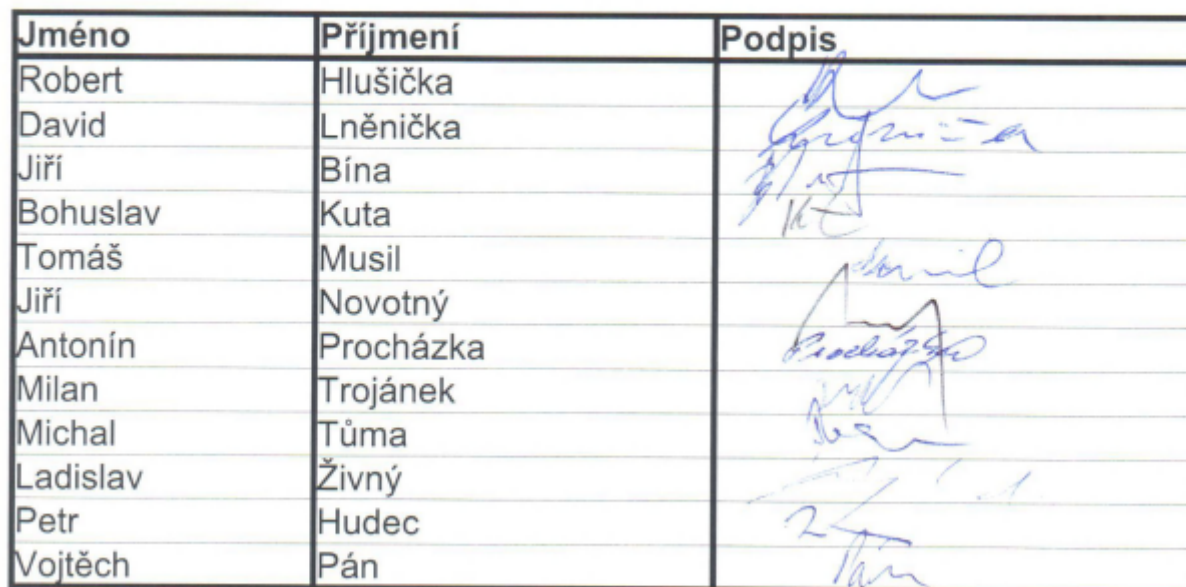 Jméno Příjmení Podpis
Robert Hlušička
David Lněnička
Jiří Bína
Bohuslav Kuta
Tomáš Musil
Jiří Novotný
Antonín Procházka Procházka
Milan Trojánek
Michal Tůma
Ladislav Živný
Petr Hudec
Vojtěch Pán Pán